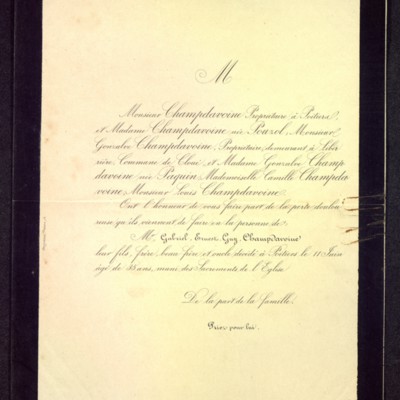 M
Monsieur Champdavoine Propriétaire à Poitiers,
et Madame Champdavoine née Pouzol, Monsieur
Gonzalve Champdavoine, Propriétaire, demeurant à
Commune de Cloué, et Madame Gonzalve Champ
davoine née Paquin, Mademoiselle Camille Champda
voine, Monsieur Louis Champdavoine.
Ont l'honneur de vous faire part de la perte doulou
reuse qu'ils viennent de faire en la personne de
M. Gabriel-Ernest-Guy Champdavoine
leur fils, frère, beau-frère et oncle décédé à Poitiers le 11 Juin
âgé de ans, muni des Sacrements de l'Eglise.
De la part de la famille.
Priez pour lui.